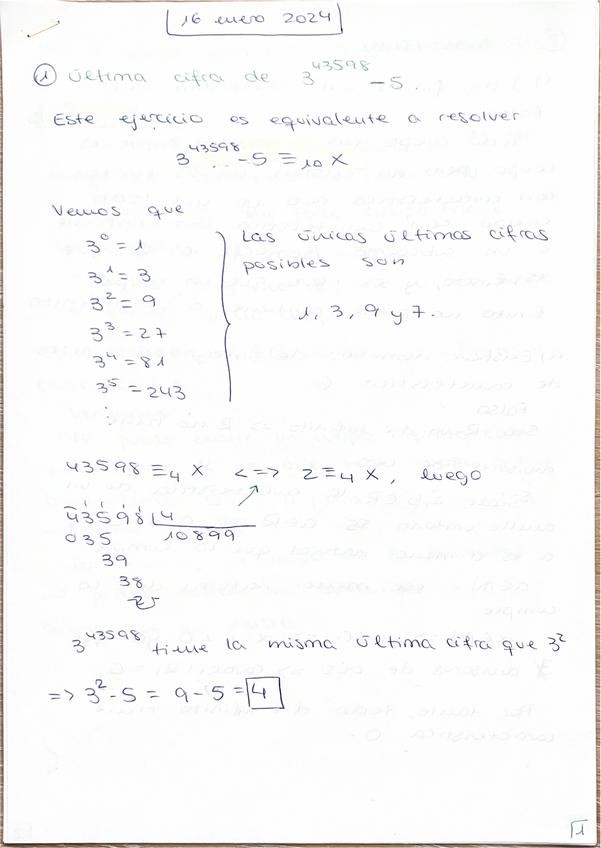 16 enero 2024
① Última cifra de 3^43598 - 5.
Este ejercicio es equivalente a resolver
3^43598 - 5 ≡₁₀ x
Vemos que
3^0 = 1
3^1 = 3
3^2 = 9
3^3 = 27
3^4 = 81
3^5 = 243
⋮
Las únicas últimas cifras
posibles son
1, 3, 9 y 7.
43598 ≡₄ x <=> 2 ≡₄ x, luego
43598 | 4
035 10899
39
38
2
3^43598 tiene la misma última cifra que 3^2
=> 3^2 - 5 = 9 - 5 = 4
1